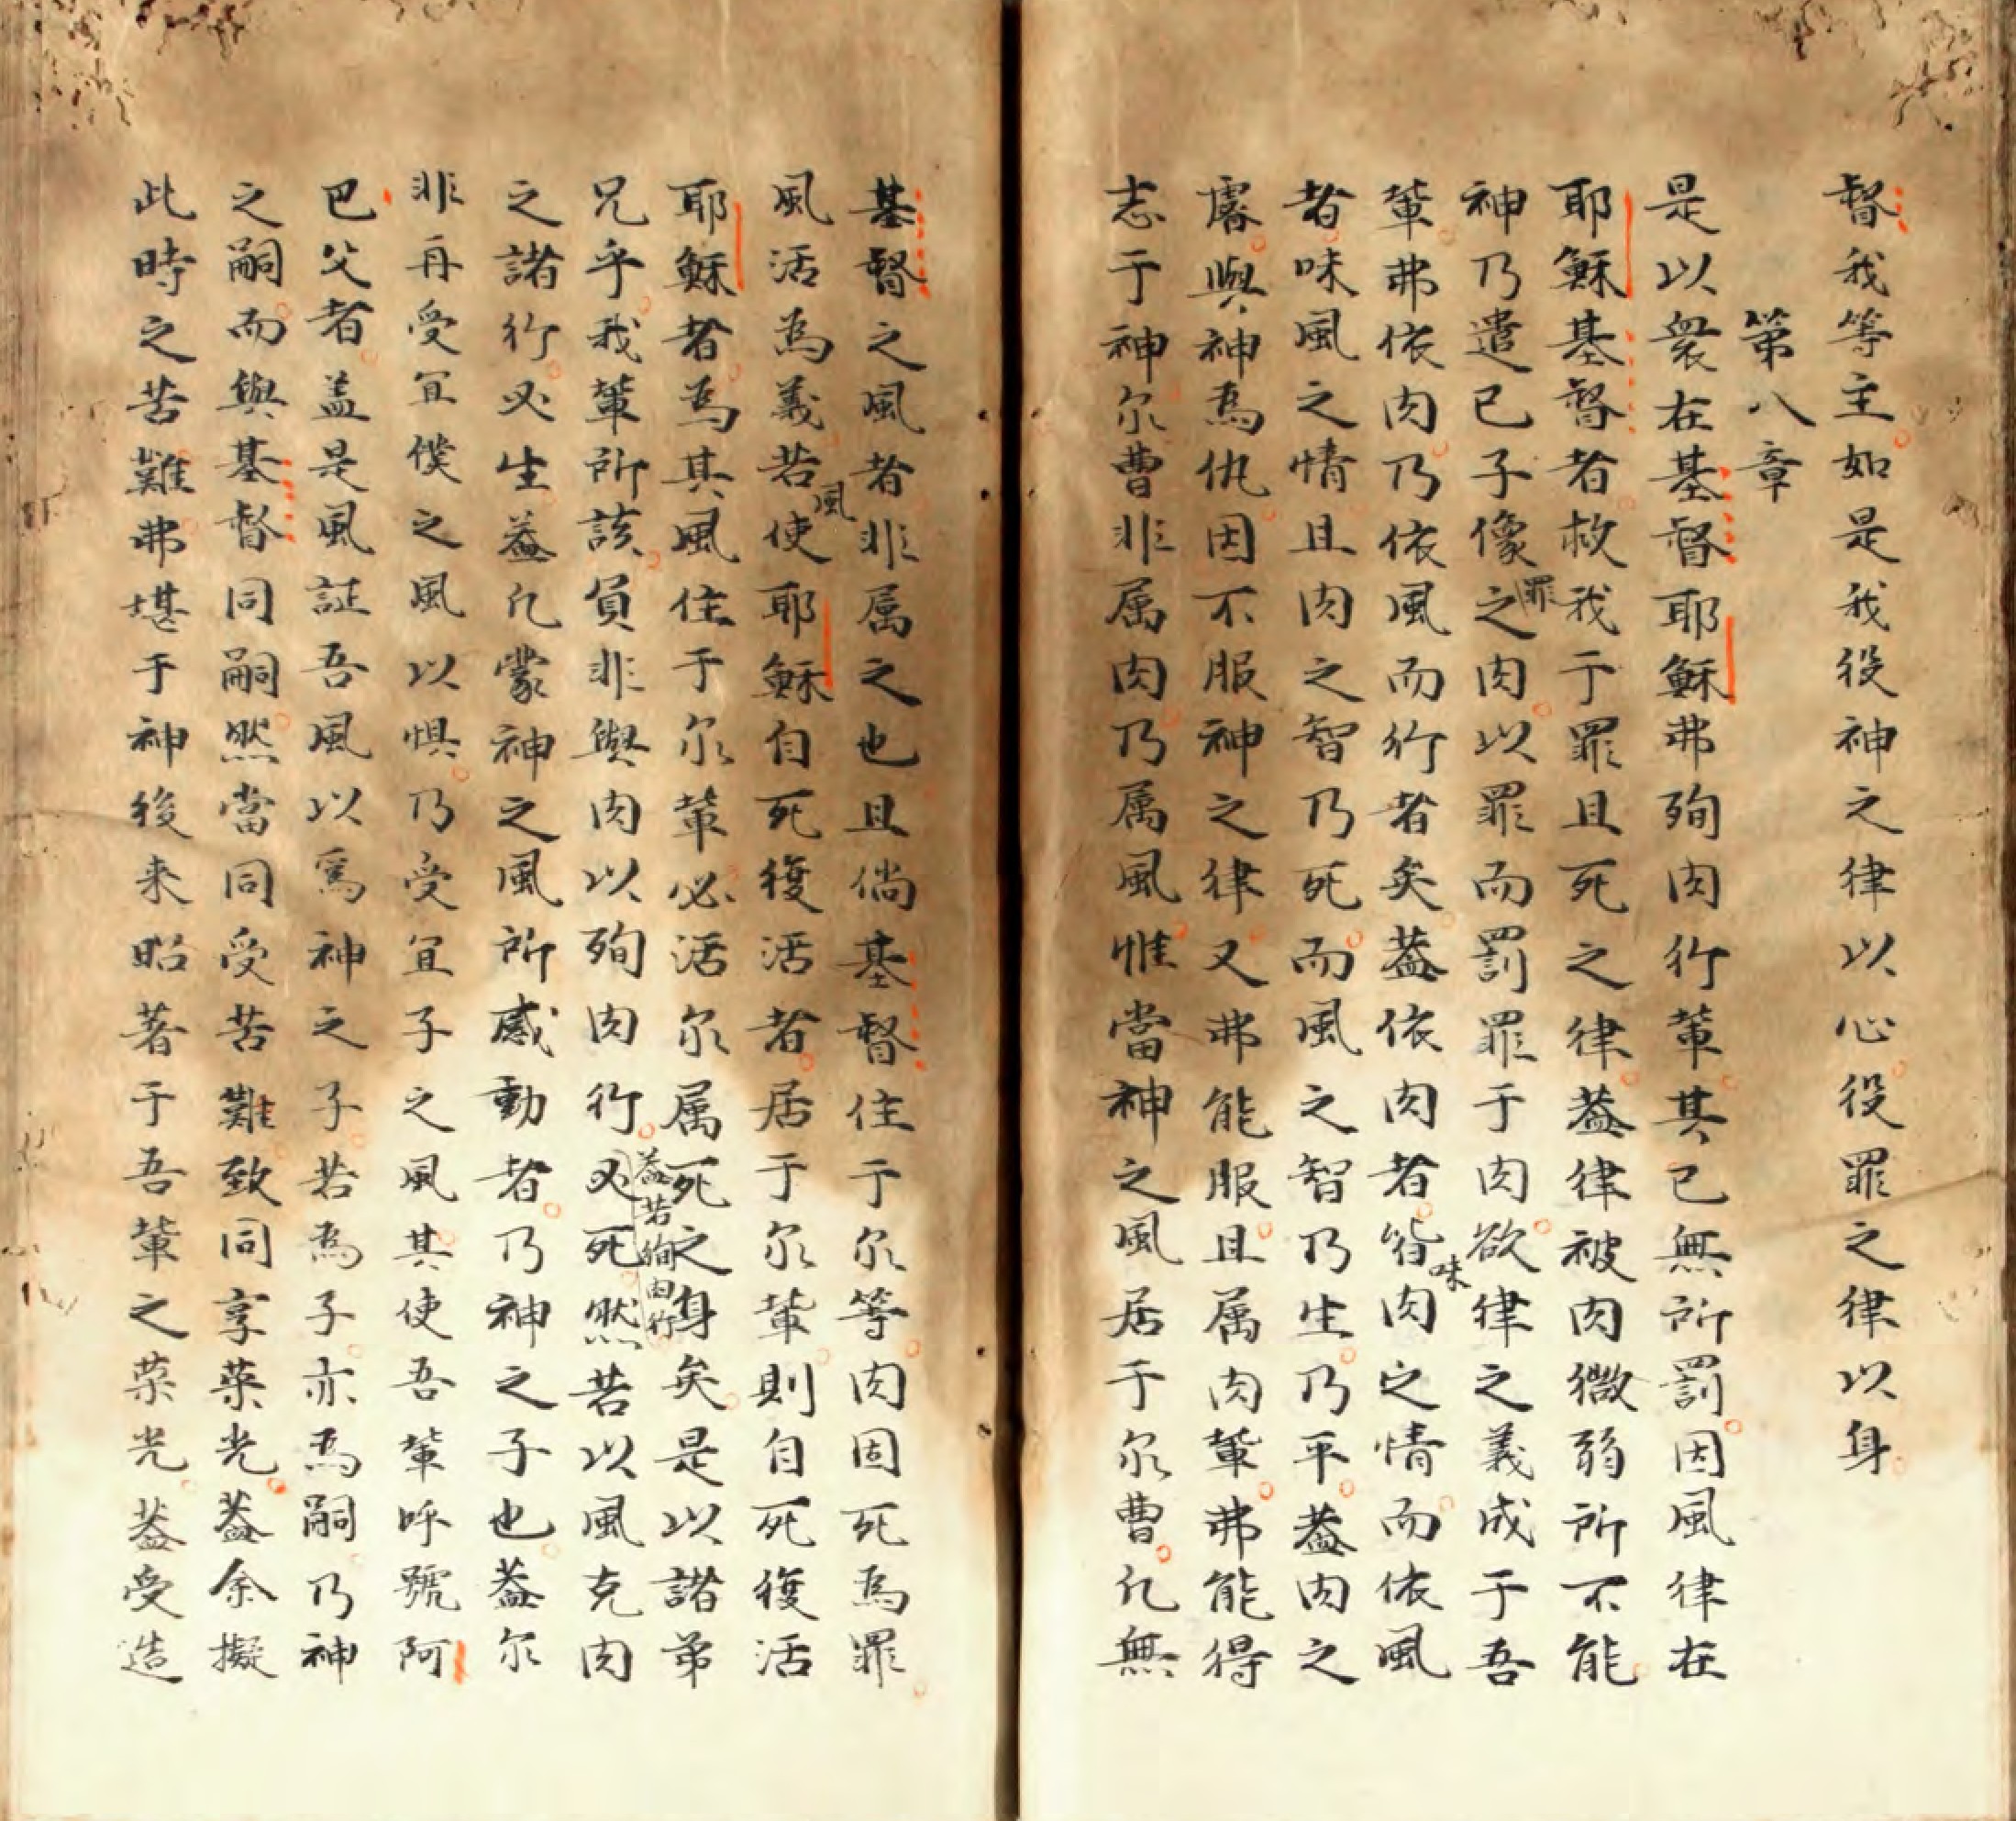 督我等主如是我役神之律以心役罪之律以身
第八章
是以衆在基督耶穌弗殉肉行輩其已無所罰因風律在
耶穌基督者救我于罪且死之律蓋律被肉微弱所不能
神乃遣已子像罪之肉以罪而罰罪于肉欲律之義成于吾
輩弗依肉乃依風而行者矣蓋依肉者皆味肉之情而依風
者味風之情且肉之智乃死而風之智乃生乃平蓋肉之
睿與神為仇因不服神之律又弗能服且属肉輩弗能得
志于神尔曹非属肉乃属風惟當神之風居于尔曹凡無
基督之風者非属之也且倘基督住于尔等肉固死為罪
風活為義若使風耶穌自死復活者居于尔輩則自死復活
耶穌者為其風住于尔輩必活尔属死之身矣是以諸弟
兄乎我輩所該負非與肉以殉肉行蓋若殉肉行必死然若以風克肉
之諸行必生蓋凡蒙神之風所感動者乃神之子也蓋尔
非再受宜僕之風以惧乃受宜子之風其使吾輩呼號阿
巴父者盖是風証吾風以為神之子若為子亦為嗣乃神
之嗣而與基督同嗣然當同受苦難致同享荣光蓋余擬
此時之苦難弗堪于神後来昭著于吾輩之荣光蓋受造